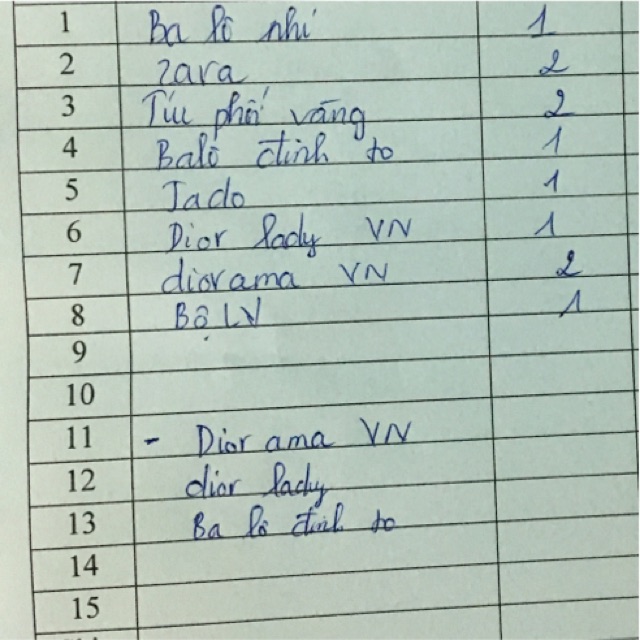 1 Ba lô nhí 1
2 zara 2
3 Túi phối vàng 2
4 Balô đinh to 1
5 Jado 1
6 Dior lady VN 1
7 diorama VN 2
8 Bộ LV 1
9
10
11 - Diorama VN
12 dior lady
13 Ba lô đinh to
14
15